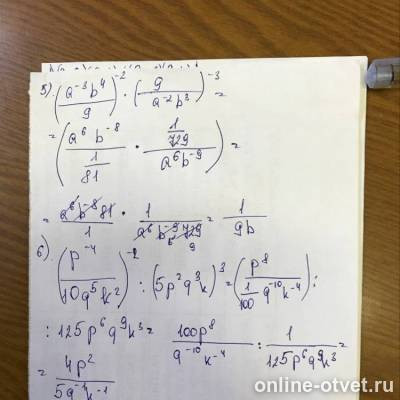 5). (a⁻³b⁴/9)⁻² · (9/a⁻²b³)⁻³ =
= (a⁶b⁻⁸/(1/81) · (1/729)/a⁶b⁻⁹) =
= a⁶b⁻⁸81/1 · 1/a⁶b⁻⁹729 = 1/9b
6). (p⁻⁴/10q⁵k²)⁻² : (5p²q³k)³ = (p⁸/(1/100)q⁻¹⁰k⁻⁴) :
: 125p⁶q⁹k³ = 100p⁸/q⁻¹⁰k⁻⁴ : 1/125p⁶q⁹k³ =
= 4p²/5q⁻¹k⁻¹
online-otvet.ru